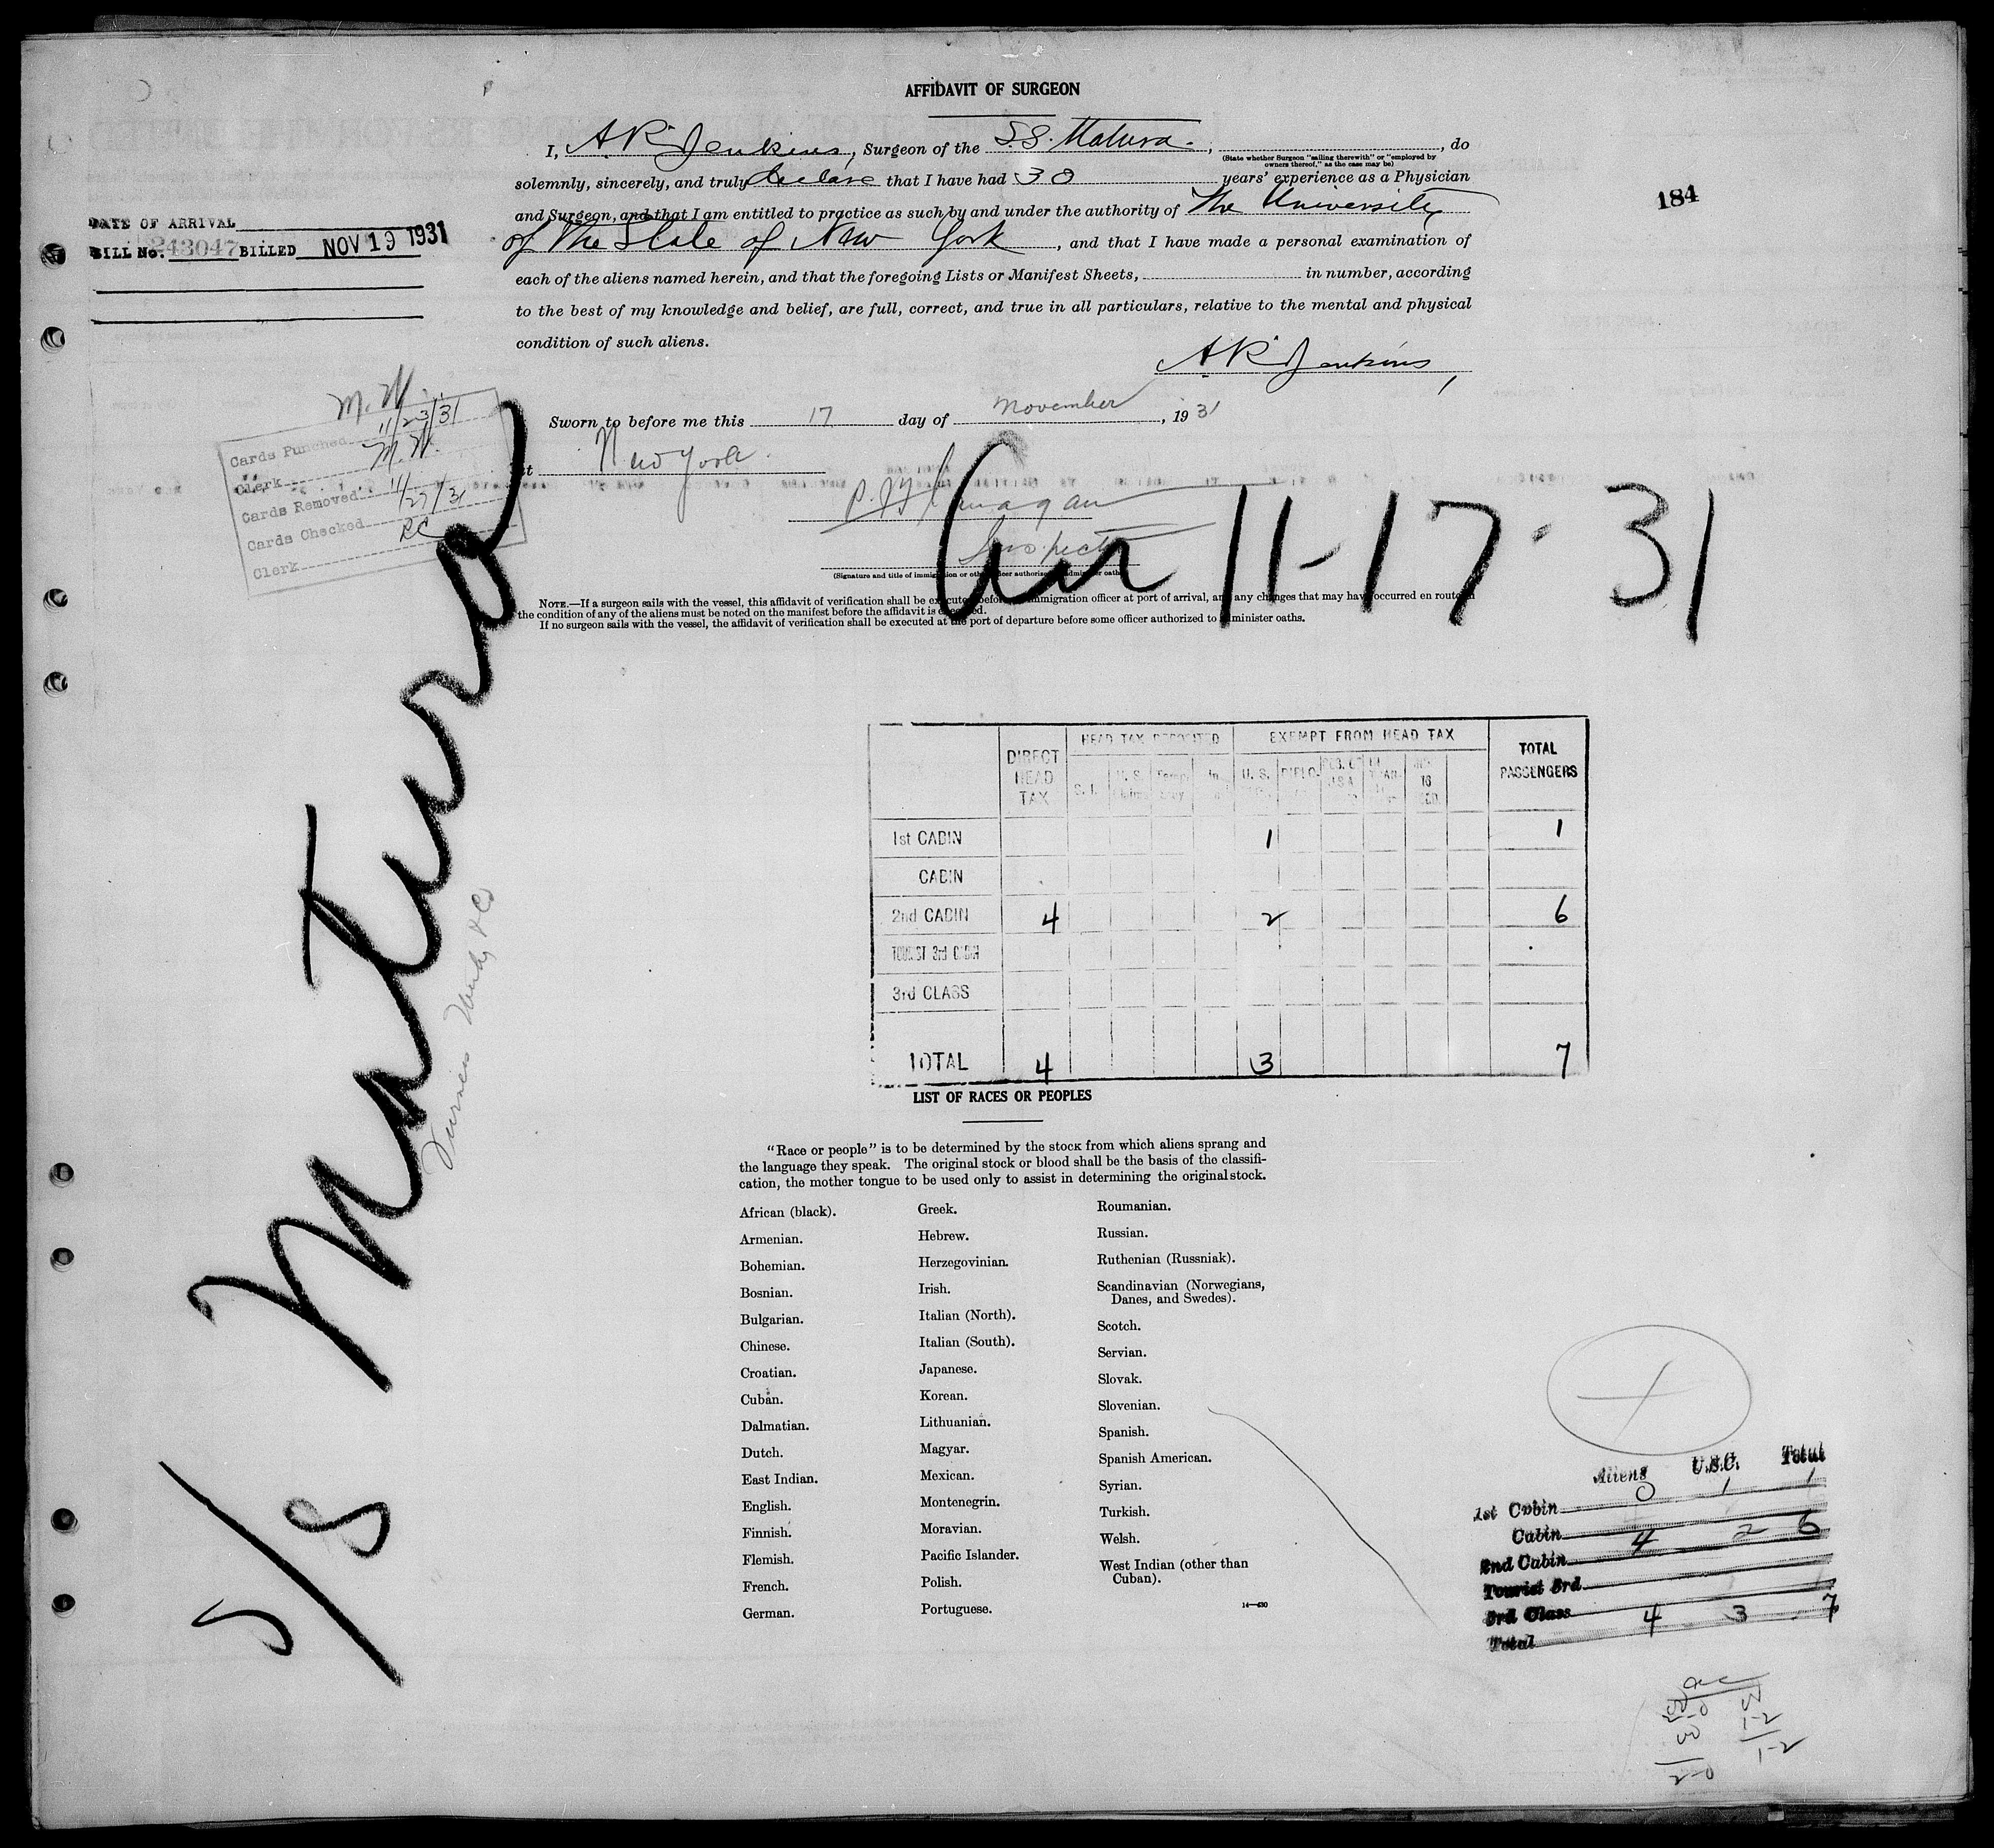 AFFIDAVIT OF SURGEON
I, A R Jenkins, Surgeon of the S.S. Matura, , do
(State whether Surgeon "sailing therewith" or "employed by
owners thereof," as the case may be)
solemnly, sincerely, and truly declare that I have had 30 years' experience as a Physician
and Surgeon, and that I am entitled to practice as such by and under the authority of The University
of The State of New York, and that I have made a personal examination of
each of the aliens named herein, and that the foregoing Lists or Manifest Sheets, in number, according
to the best of my knowledge and belief, are full, correct, and true in all particulars, relative to the mental and physical
condition of such aliens.
A R Jenkins,
Sworn to before me this 17 day of November, 1931
at New York.
Inspector
(Signature and title of immigration or other officer authorized to administer oaths)
NOTE.—If a surgeon sails with the vessel, this affidavit of verification shall be executed before immigration officer at port of arrival, and any changes that may have occurred en route in
the condition of any of the aliens must be noted on the manifest before the affidavit is executed.
If no surgeon sails with the vessel, the affidavit of verification shall be executed at the port of departure before some officer authorized to administer oaths.
184
DATE OF ARRIVAL
BILL No. 243047 BILLED NOV 19 1931
M.W.
Cards Punched 11/23/31
Clerk M.W.
Cards Removed 11/27/31
Cards Checked RC
Clerk
Arr 11-17-31
S/S Matura
DIRECT HEAD TAX HEAD TAX DEPOSITED EXEMPT FROM HEAD TAX TOTAL PASSENGERS
S. I. U. S. U. S. DIPLO- 16
1st CABIN 1 1
CABIN
2nd CABIN 4 2 6
TOURIST 3rd CABIN
3rd CLASS
TOTAL 4 3 7
LIST OF RACES OR PEOPLES
"Race or people" is to be determined by the stock from which aliens sprang and
the language they speak. The original stock or blood shall be the basis of the classifi-
cation, the mother tongue to be used only to assist in determining the original stock.
African (black).
Armenian.
Bohemian.
Bosnian.
Bulgarian.
Chinese.
Croatian.
Cuban.
Dalmatian.
Dutch.
East Indian.
English.
Finnish.
Flemish.
French.
German.
Greek.
Hebrew.
Herzegovinian.
Irish.
Italian (North).
Italian (South).
Japanese.
Korean.
Lithuanian.
Magyar.
Mexican.
Montenegrin.
Moravian.
Pacific Islander.
Polish.
Portuguese.
Roumanian.
Russian.
Ruthenian (Russniak).
Scandinavian (Norwegians,
Danes, and Swedes).
Scotch.
Servian.
Slovak.
Slovenian.
Spanish.
Spanish American.
Syrian.
Turkish.
Welsh.
West Indian (other than
Cuban).
14—430
Aliens U.S.C. Total
1st Cabin 0 1 1
Cabin
2nd Cabin 4 2 6
Tourist 3rd
3rd Class
Total 4 3 7